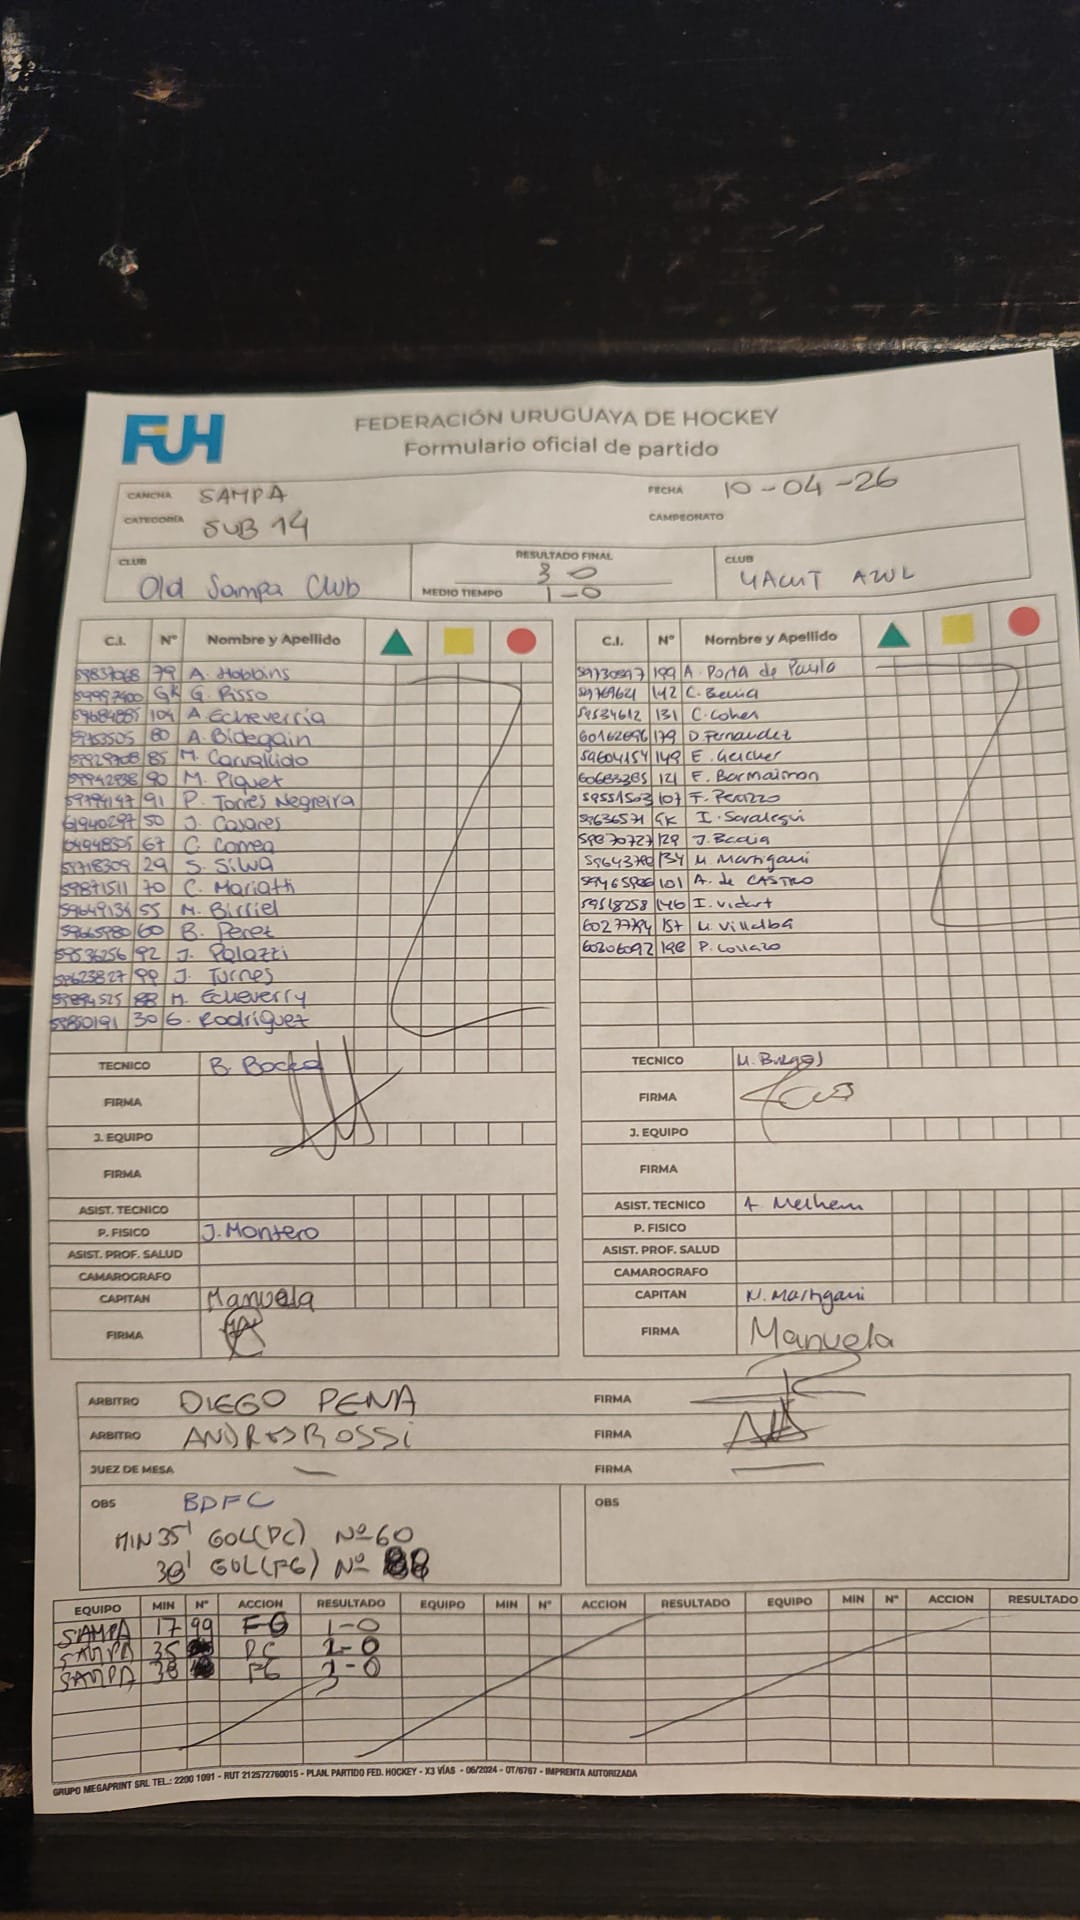 FUH
FEDERACIÓN URUGUAYA DE HOCKEY
Formulario oficial de partido
CANCHA SAMPA FECHA 10-04-26
CATEGORÍA SUB 14 CAMPEONATO
CLUB Old Sampa Club
RESULTADO FINAL 3 0
MEDIO TIEMPO 1-0
CLUB YACHT AZUL
C.I. Nº Nombre y Apellido
79 A. Hobbins
GK G. Risso
104 A. Echeverría
80 A. Bidegain
85 M. Carvallido
90 M. Piquet
91 P. Torres Negreira
50 J. Casares
67 C. Correa
29 S. Silva
59871511 70 C. Mariatti
59649134 55 M. Birriel
59665980 60 B. Perez
59536256 92 J. Palazzi
99 J. Turnes
88 M. Echeverry
30 G. Rodriguez
C.I. Nº Nombre y Apellido
199 A. Porta de Paulo
59769621 142 C.
59534612 131 C. Cohen
60162696 179 D. Fernandez
59604154 149 E.
121 F.
59551503 107 F. Perazzo
59636571 GK I. Saralegui
129 J.
134 M. Martigani
101 A. de CASTRO
59518258 146 I. Vidart
157 M. Villalba
60206092 P. Collazo
TECNICO B.
FIRMA
J. EQUIPO
FIRMA
ASIST. TECNICO
P. FISICO J. Montero
ASIST. PROF. SALUD
CAMAROGRAFO
CAPITAN Manuela
FIRMA
TECNICO M. Burgos
FIRMA
J. EQUIPO
FIRMA
ASIST. TECNICO A. Melhem
P. FISICO
ASIST. PROF. SALUD
CAMAROGRAFO
CAPITAN M. Martigani
FIRMA Manuela
ARBITRO DIEGO PENA FIRMA
ARBITRO ANDRES ROSSI FIRMA
JUEZ DE MESA — FIRMA —
OBS BDFC
MIN 35' GOL(PC) Nº 60
38' GOL(FG) Nº 88
OBS
EQUIPO MIN Nº ACCION RESULTADO EQUIPO MIN Nº ACCION RESULTADO EQUIPO MIN Nº ACCION RESULTADO
SAMPA 17 99 FG 1-0
SAMPA 35 PC 2-0
SAMPA 38 FG 3-0
GRUPO MEGAPRINT SRL TEL.: 2200 1091 - RUT 212572760015 - PLAN. PARTIDO FED. HOCKEY - X3 VÍAS - 06/2024 - OT/6767 - IMPRENTA AUTORIZADA